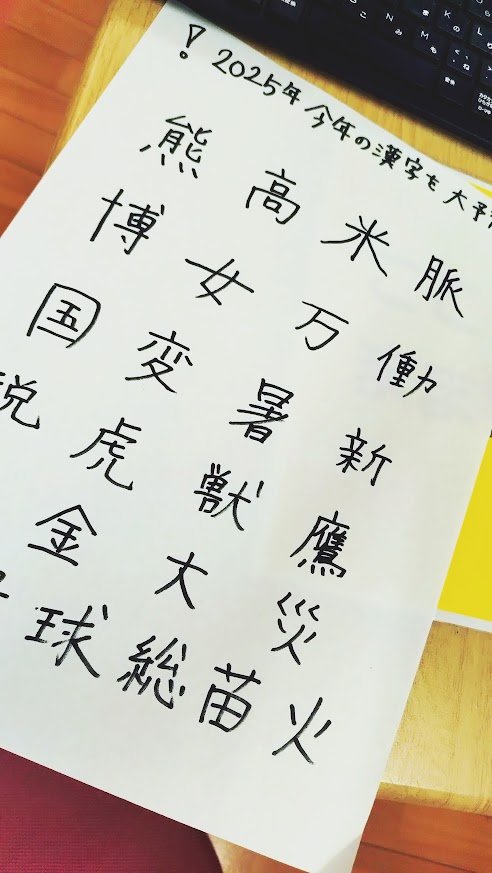 ! 2025年 今年の漢字を 大予
熊 高 米 脈
博 女 万 働
国 変 暑 新
虎 獣 鷹
金 大 災
球 総 苗 火